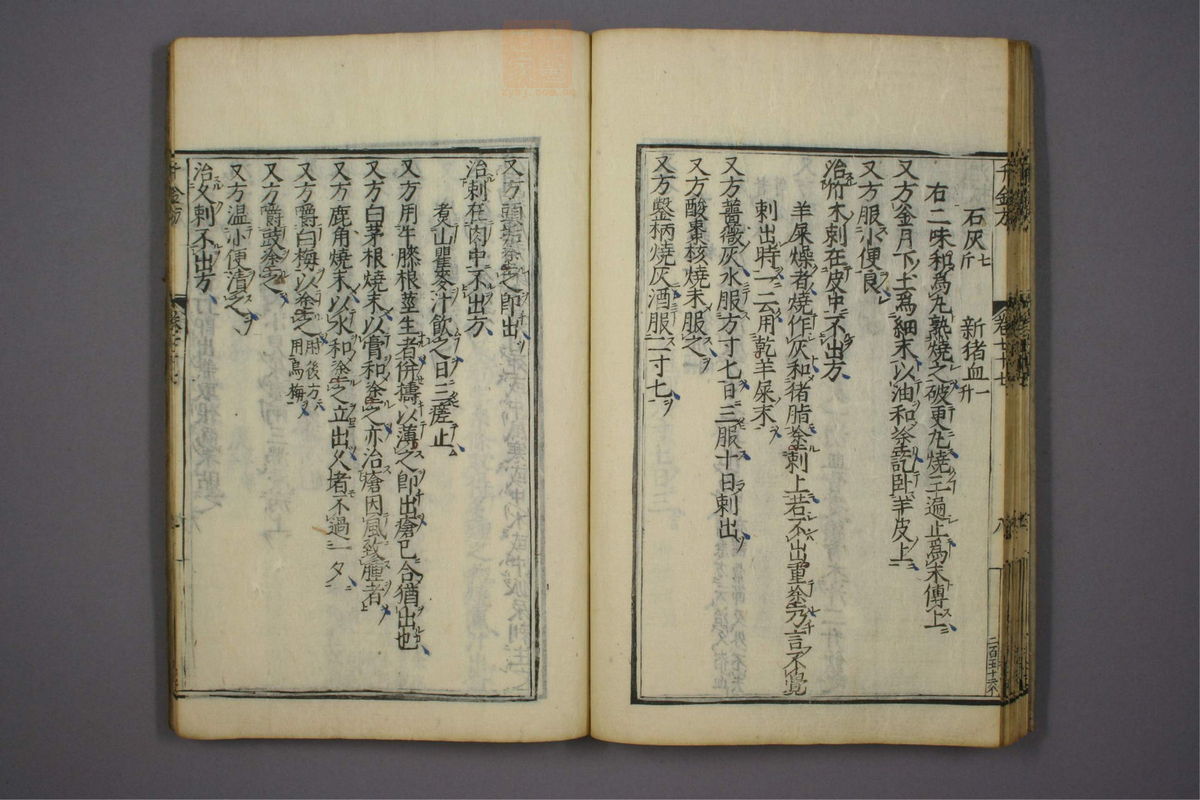 石灰七斤 新猪血一升
右二味和為丸熟燒之破更丸燒三遍止為末傅上
又方釜月下土為細末以油和塗訖卧羊皮上
又方服小便良
治竹木刺在皮中不出方
羊屎燥者燒作灰和猪脂塗刺上若不出重塗乃言不覺
刺出時一云用乾羊屎末
又方薔薇灰水服方寸七日三服十日刺出
又方酸棗核燒末服之
又方鑿柄燒灰酒服二寸七
千金方 八
二百五十六
又方頭垢塗之即出
治刺在肉中不出方
煮山瞿麥汁飲之日三瘥止
又方用牛膝根莖生者併擣以薄之即出瘡已合猶出也
又方白茅根燒末以膏和塗之亦治瘡因風致腫者
又方鹿角燒末以水和塗之立出久者不過一夕
又方嚼白梅以塗之肘後方用烏梅
又方嚼豉塗之
又方温小便漬之
治久刺不出方
千金方